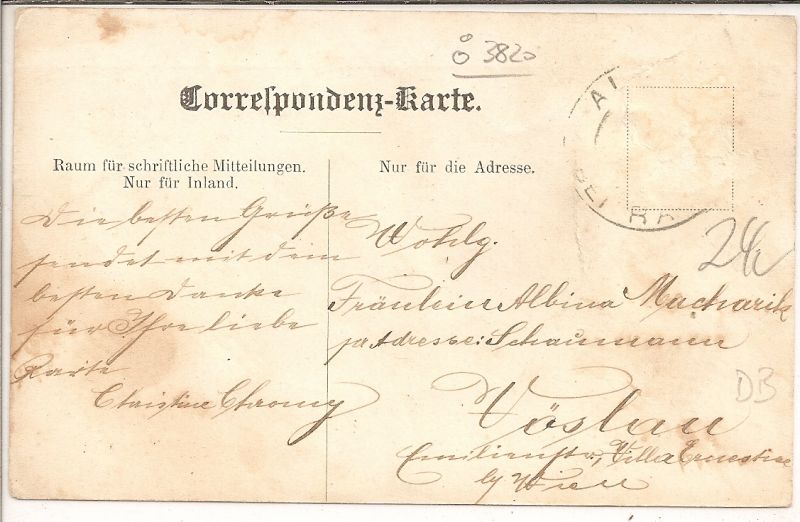 ö 3820
Correspondenz-Karte.
Raum für schriftliche Mitteilungen.
Nur für Inland.
Nur für die Adresse.
Die besten Grüße
sendet mit dem
besten Danke
für Ihre liebe
Karte
Christine Chromy
Wohlg.
Fräulein Albina Macharik
Adresse: Schaumann
Vöslau
Emilienstr., Villa Ernestine
Wien
AL
BEI RA
DB